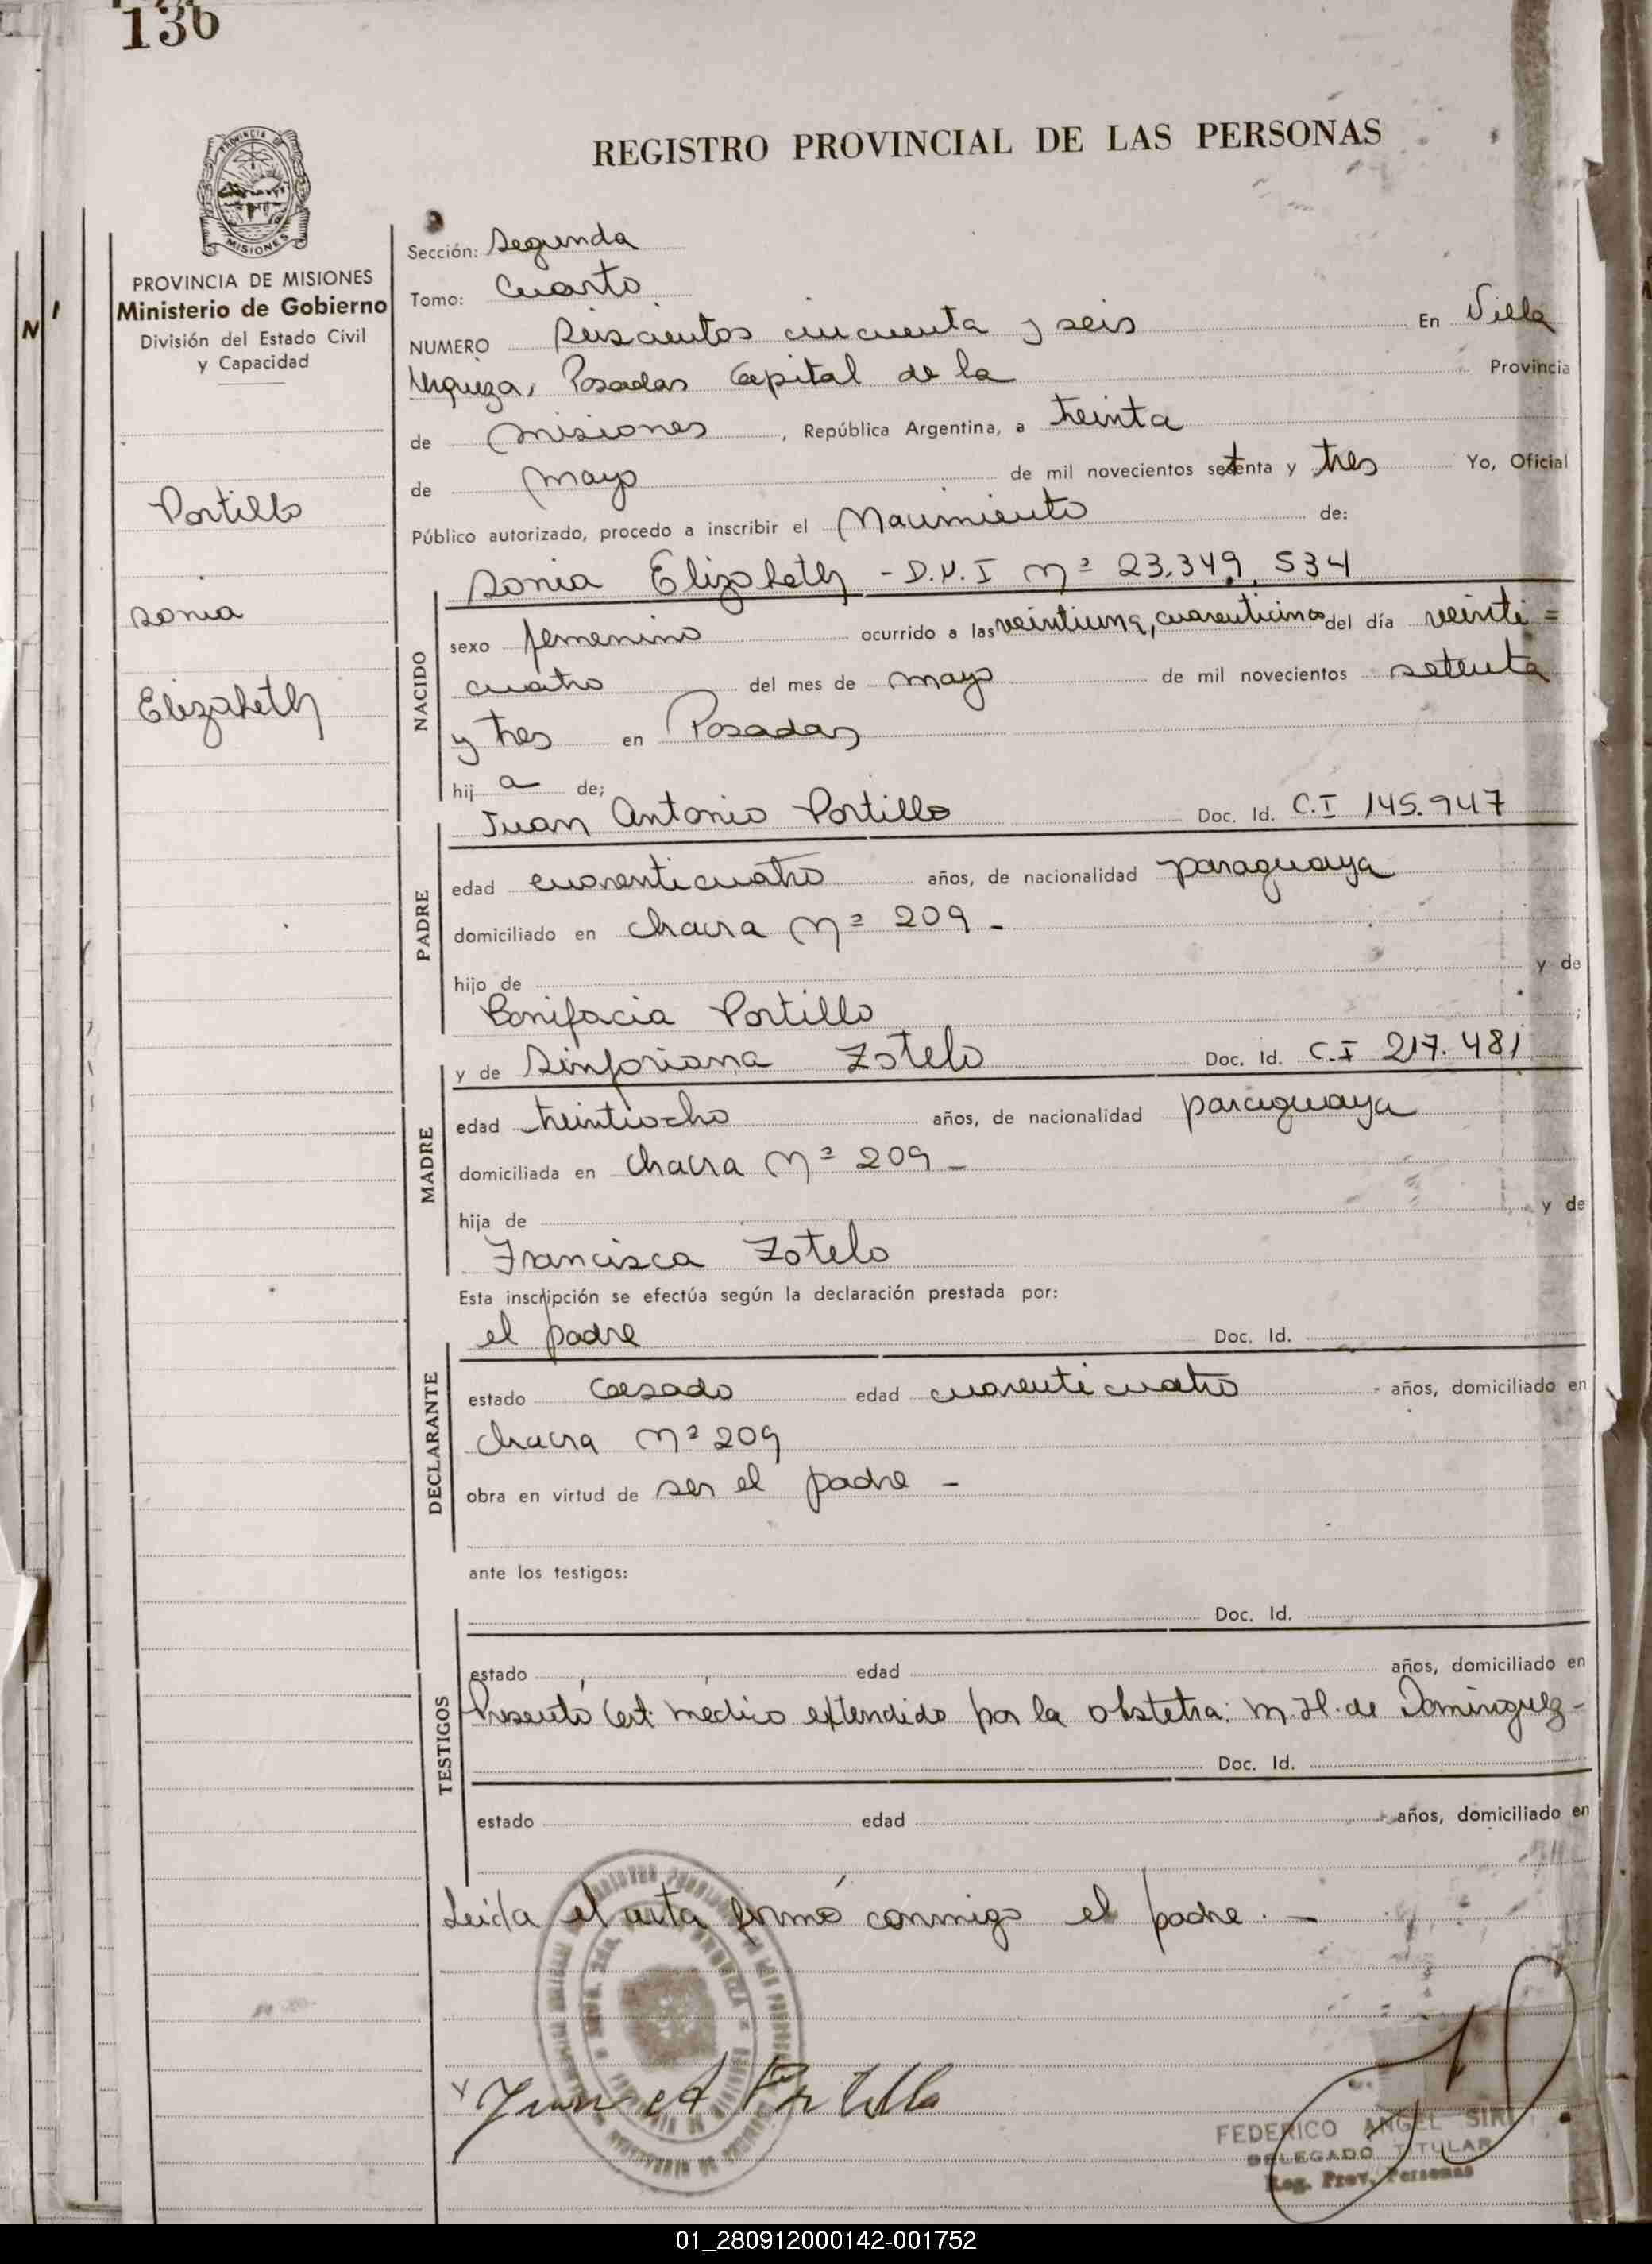 136
REGISTRO PROVINCIAL DE LAS PERSONAS
PROVINCIA DE MISIONES
MISIONES
PROVINCIA DE MISIONES
Ministerio de Gobierno
División del Estado Civil
y Capacidad
Portillo
Sonia
Elizabeth
Sección: Segunda
Tomo: Cuarto
NUMERO Seiscientos cincuenta y seis En Villa
Urquiza, Posadas Capital de la Provincia
de Misiones, República Argentina, a treinta
de Mayo de mil novecientos setenta y tres Yo, Oficial
Público autorizado, procedo a inscribir el Nacimiento de:
Sonia Elizabeth - D.N.I Nº 23.349.534
NACIDO
sexo femenino ocurrido a las veintiuna, cuarenticinco del día veinti=
cuatro del mes de mayo de mil novecientos setenta
y tres en Posadas
hij a de;
Juan Antonio Portillo Doc. Id. C.I 145.947
PADRE
edad cuarenticuatro años, de nacionalidad paraguaya
domiciliado en chacra Nº 209 -
hijo de y de
Bonifacia Portillo ;
y de Sinforiana Zotelo Doc. Id. C.I 217.481
MADRE
edad treintiocho años, de nacionalidad paraguaya
domiciliada en chacra Nº 209 -
hija de y de
Francisca Zotelo
Esta inscripción se efectúa según la declaración prestada por:
el padre Doc. Id.
DECLARANTE
estado Casado edad cuarenticuatro años, domiciliado en
chacra Nº 209
obra en virtud de ser el padre -
ante los testigos:
Doc. Id.
TESTIGOS
estado edad años, domiciliado en
Presentó Cert. médico extendido por la obstetra: M.H. de Dominguez -
Doc. Id.
estado edad años, domiciliado en
Leida el acta firmó conmigo el padre. -
Juan A Portillo
FEDERICO ANGEL SIR
DELEGADO TITULAR
Reg. Prov. Personas
01_280912000142-001752